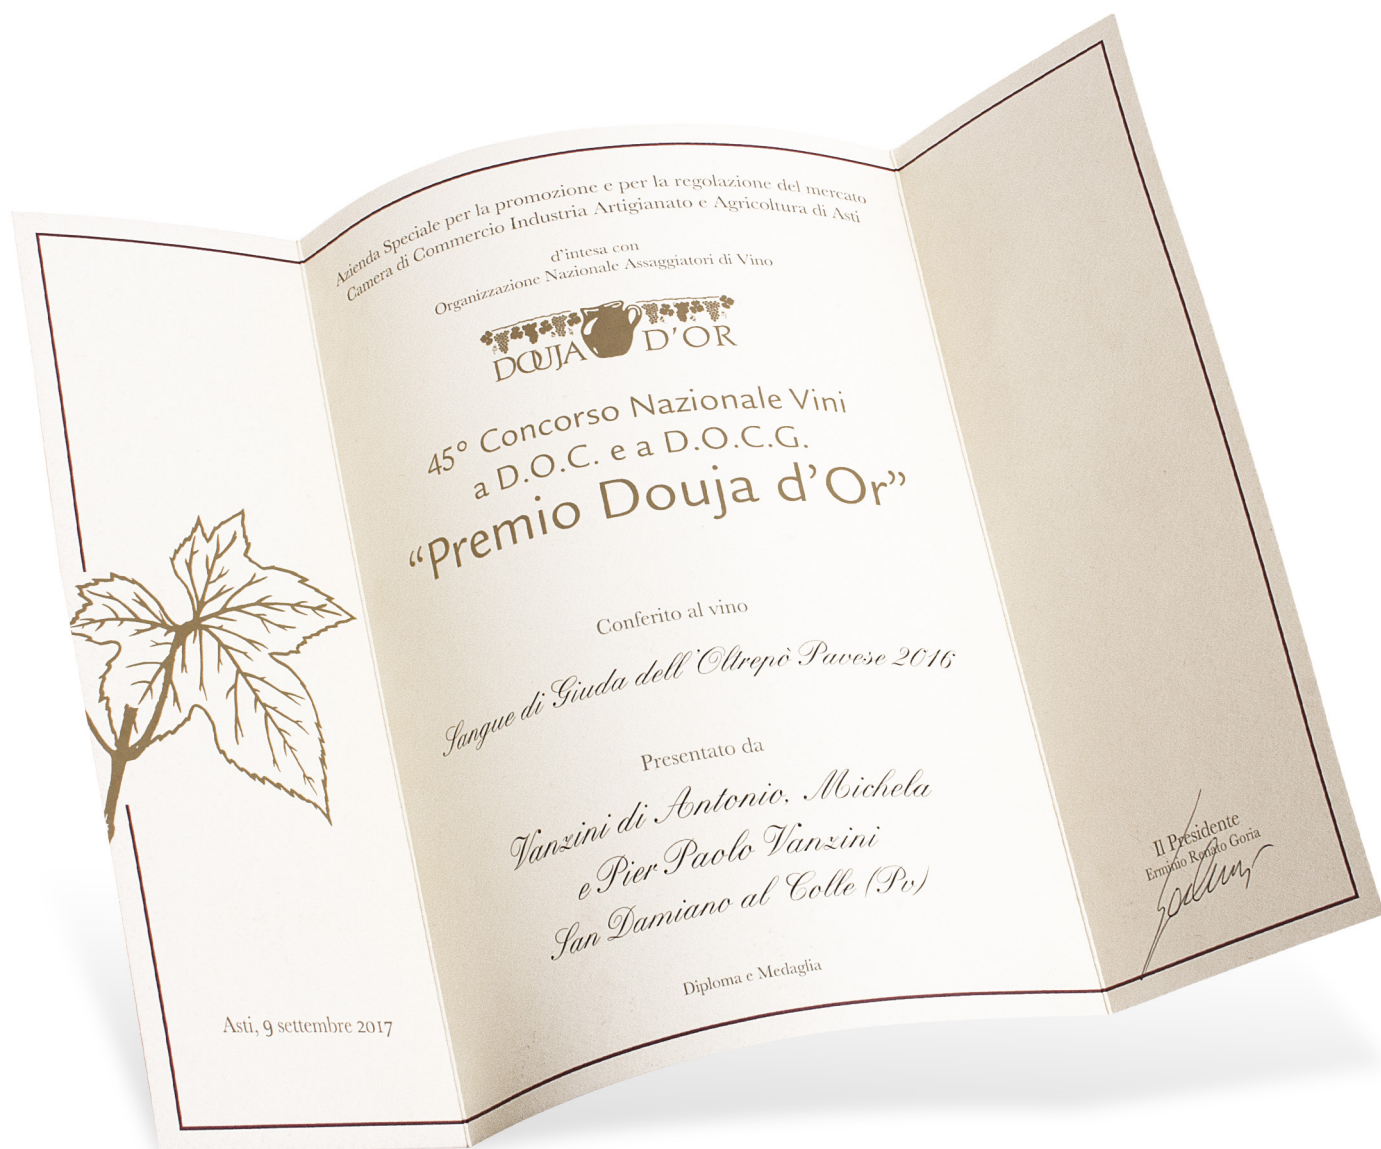 Azienda Speciale per la promozione e per la regolazione del mercato
Camera di Commercio Industria Artigianato e Agricoltura di Asti
d'intesa con
Organizzazione Nazionale Assaggiatori di Vino
DOUJA D'OR
45° Concorso Nazionale Vini
a D.O.C. e a D.O.C.G.
“Premio Douja d'Or”
Conferito al vino
Sangue di Giuda dell'Oltrepò Pavese 2016
Presentato da
Vanzini di Antonio, Michela
e Pier Paolo Vanzini
San Damiano al Colle (Pv)
Diploma e Medaglia
Asti, 9 settembre 2017
Il Presidente
Erminio Renato Goria